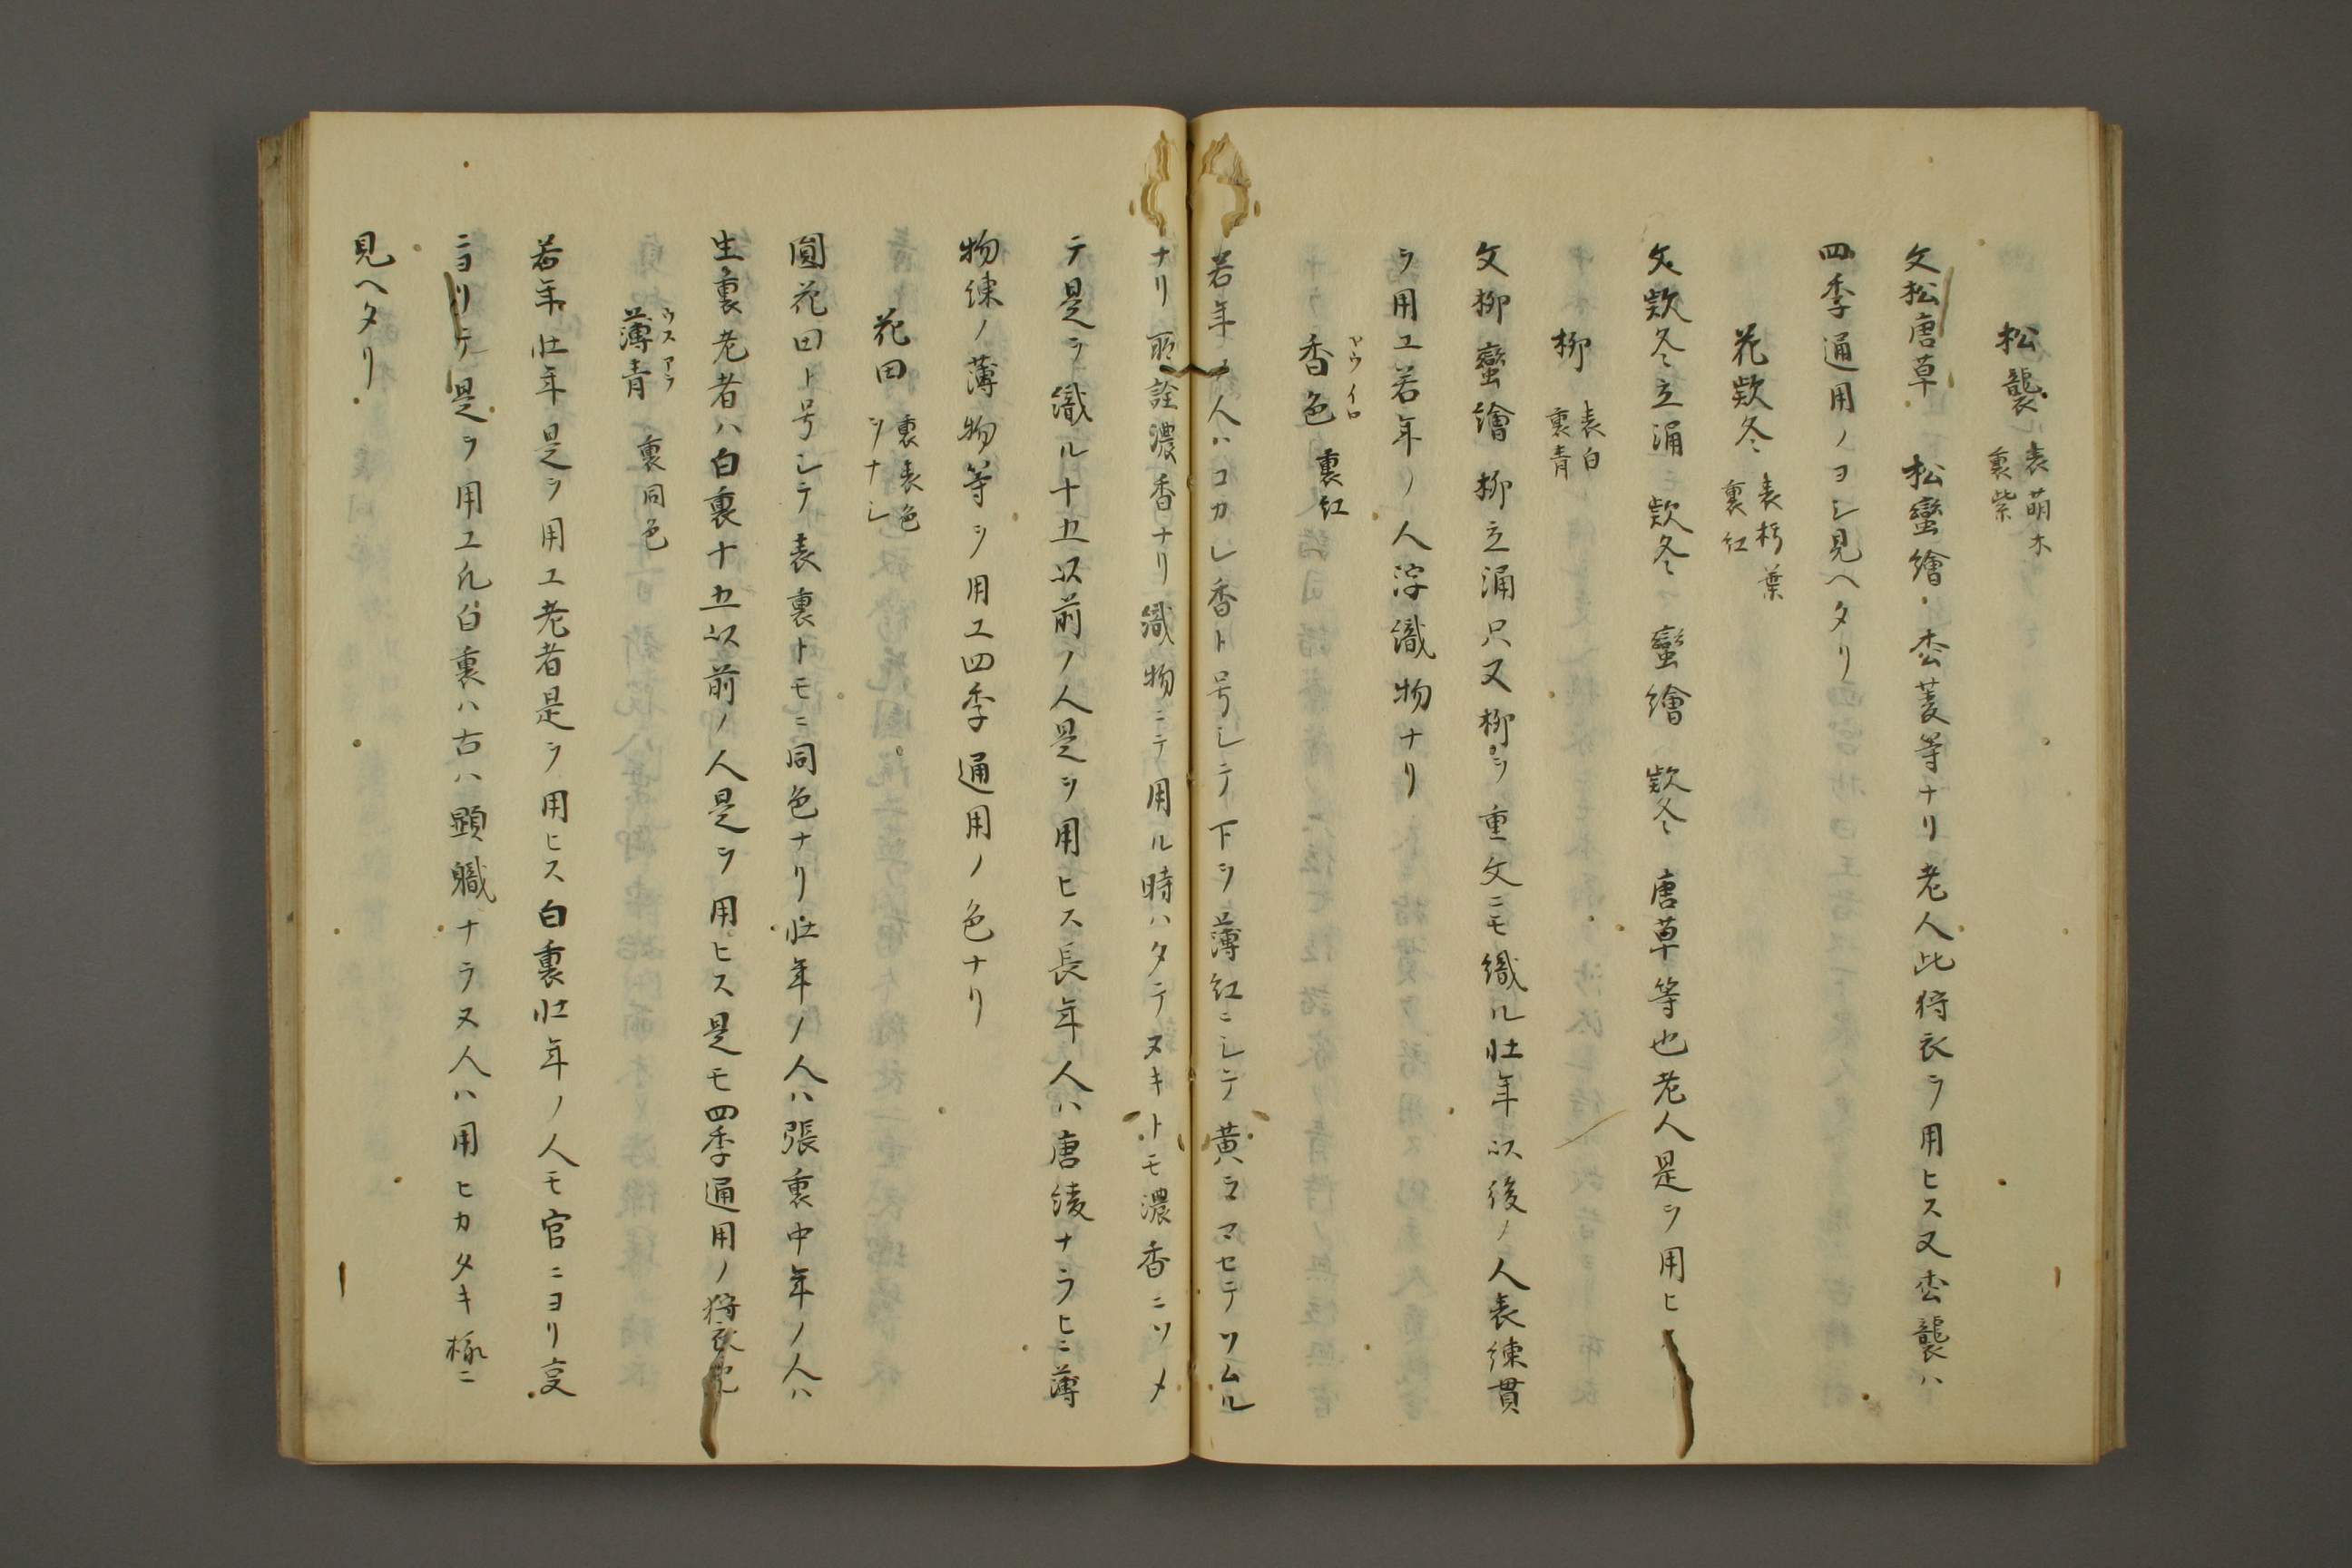 松襲 表萌木 裏紫
文松唐草 松蠻繪 枩菱等ナリ老人此狩衣ヲ用ヒス又枩襲ハ
四季通用ノヨシ見ヘタリ
花欵冬 表朽葉 裏紅
文欵冬立涌 欵冬蠻繪 欵冬唐草等也老人是ヲ用ヒ
柳 表白 裏青
文柳蠻繪 柳立涌只又柳ヲ重文ニモ織ル壯年以後ノ人表練貫
ヲ用エ若年ノ人浮織物ナリ
香色 裏紅
若年ノ人ハコカレ香ト号シテ下ヲ薄紅ニシテ黄ヲマセテソムル
ナリ所詮濃香ナリ織物ニテ用ル時ハタテヌキトモ濃香ニソメ
テ是ヲ織ル十五以前ノ人是ヲ用ヒス長年人ハ唐綾ナラヒニ薄
物練ノ薄物等ヲ用エ四季通用ノ色ナリ
花田 裏表色ヲナシ
圓花田ト号シテ表裏トモニ同色ナリ壯年ノ人ハ張裏中年ノ人ハ
生裏老者ハ白裏十五以前ノ人是ヲ用ヒス是モ四季通用ノ狩衣也
薄青 ウスアヲ 裏同色
若年壯年是ヲ用エ老者是ヲ用ヒス白裏壯年ノ人モ官ニヨリ享
ニヨリテ是ヲ用エ凡白裏ハ古ハ顕軄ナラヌ人ハ用ヒカタキ様ニ
見ヘタリ